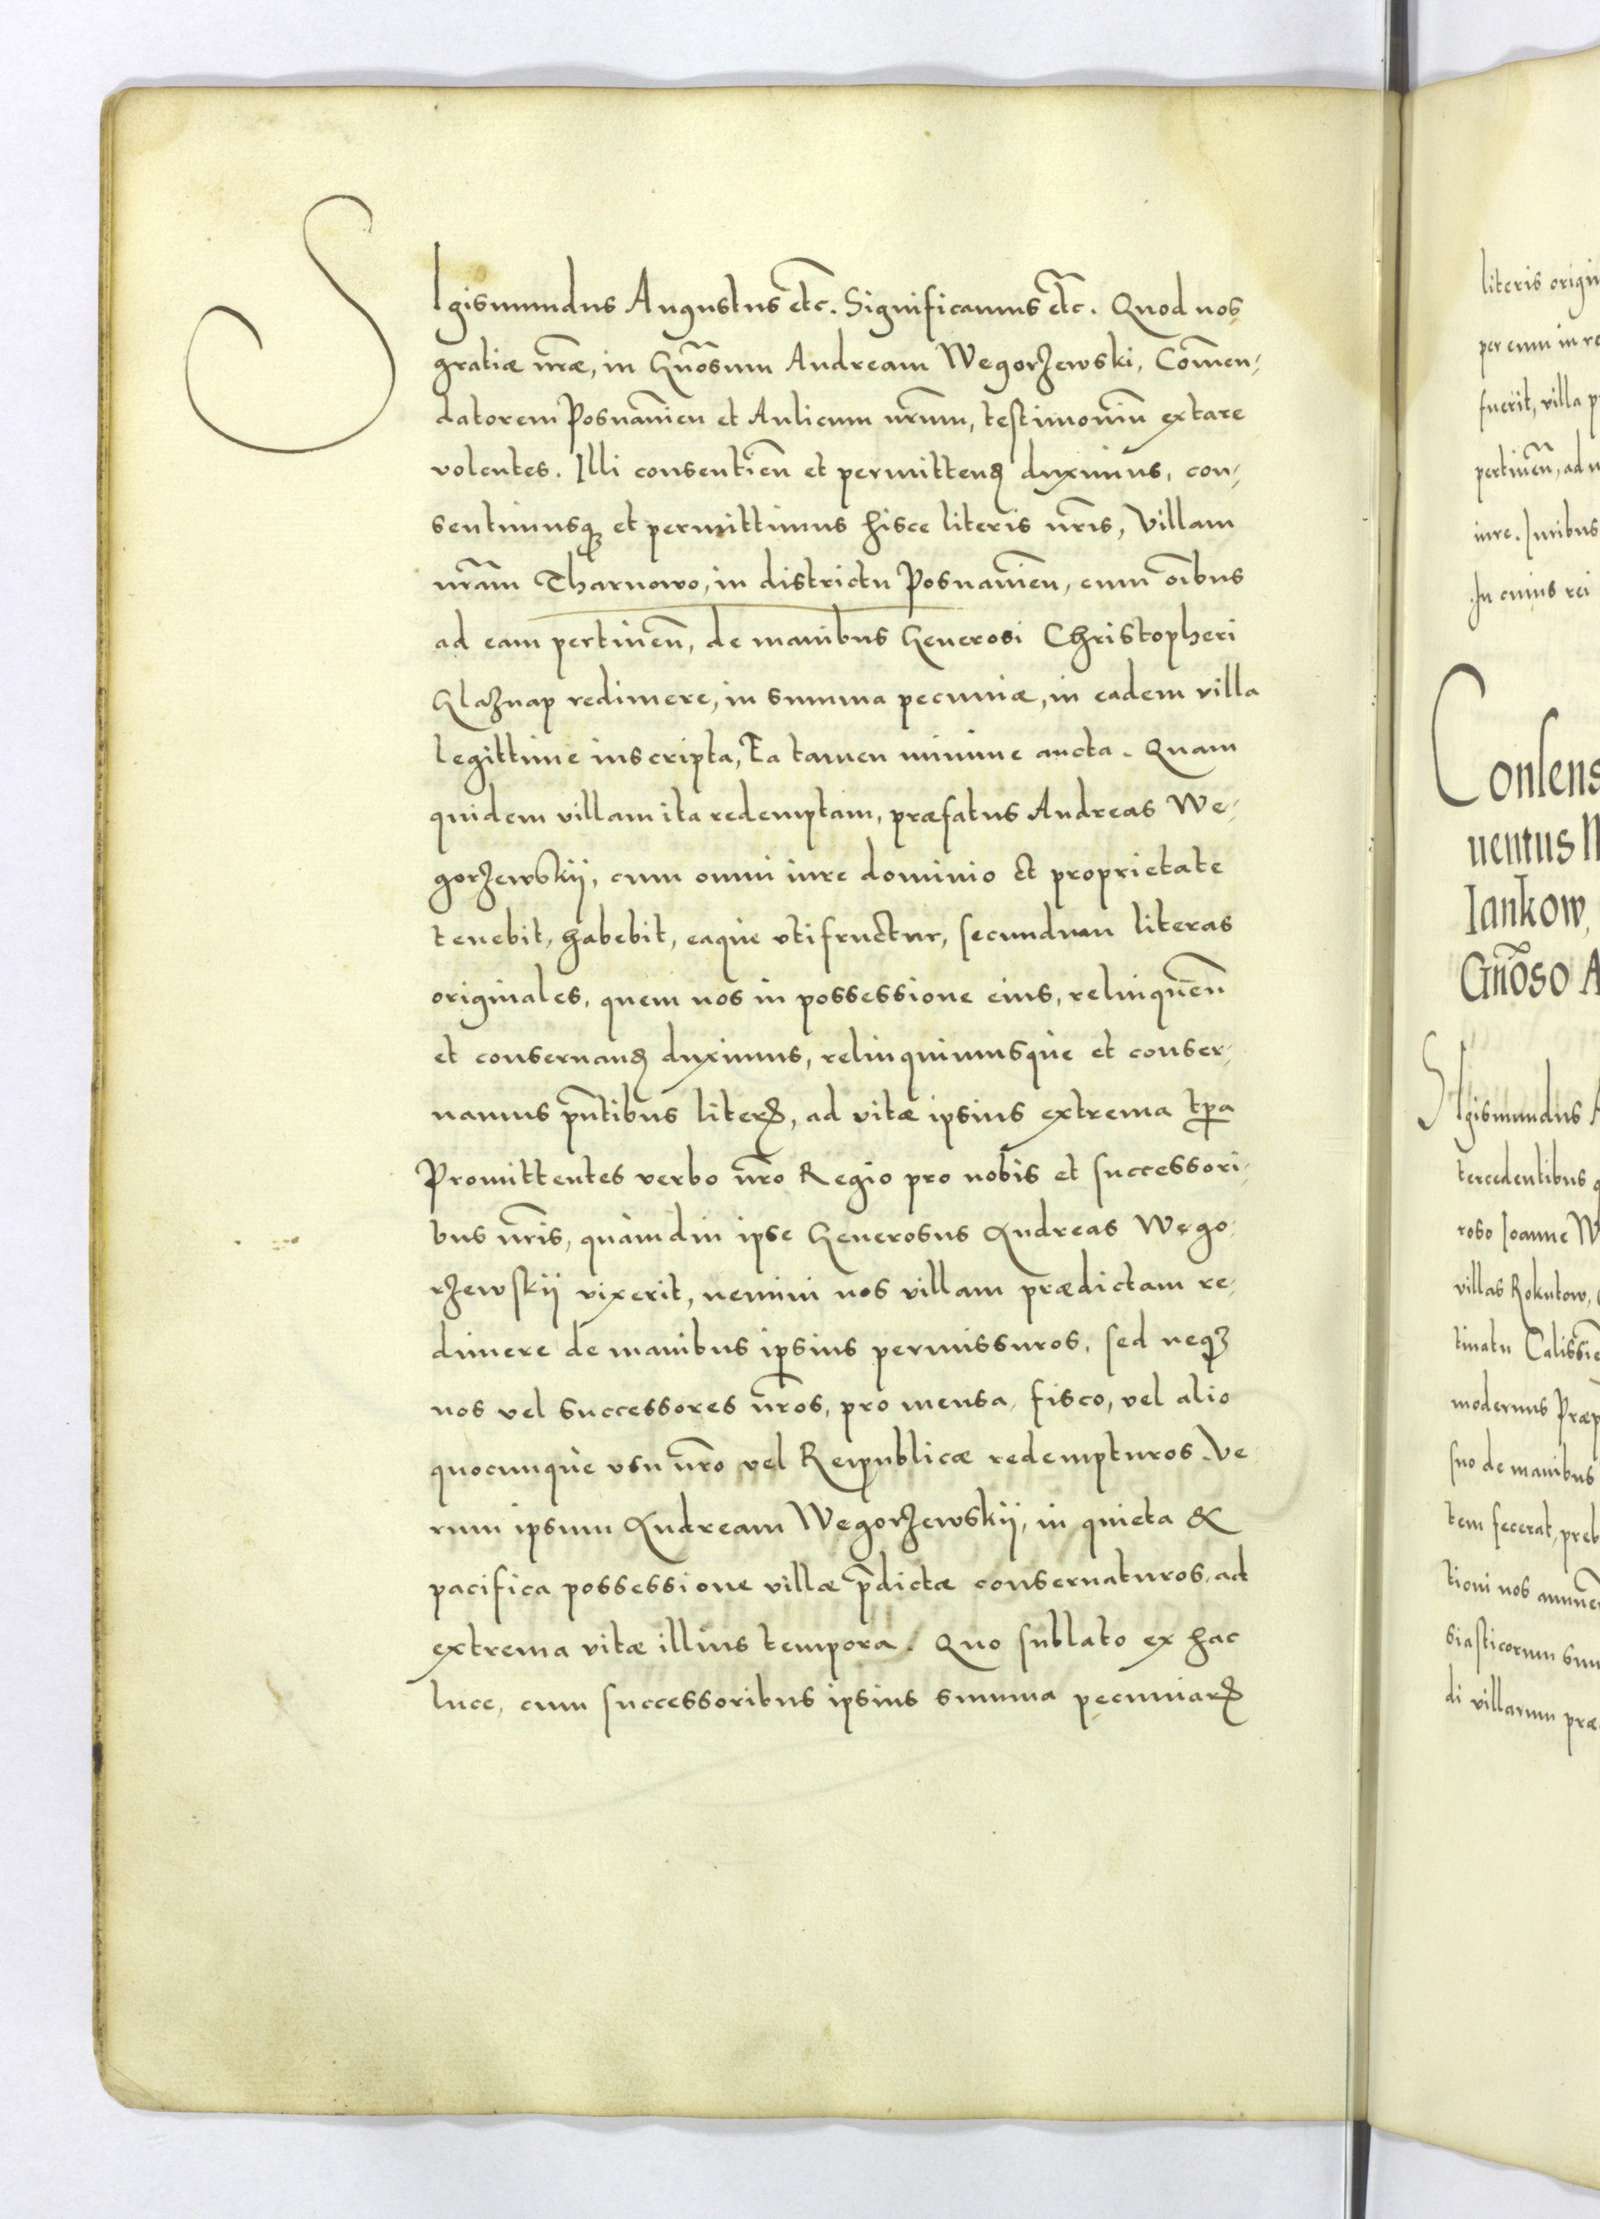 SIgismundus Augustus etc̃. Significamus etc̃. Quod nos
gratiæ nr̃æ, in Gñosum Andream Wegorzewski, Com̃en-
datorem Posnanieñ et Aulicum nr̃um, testimoniũ extare
volentes. Illi consentieñ et permittenꝺ duximus, con-
sentimusqꝫ et permittimus hisce literis nr̃is, Villam
nr̃am Tharnowo, in districtu Posnanieñ, cum oĩbus
ad eam pertineñ, de manibus Generosi Christopheri
Glaznap redimere, in summa pecuniæ, in eadem villa
legittime inscripta, Ea tamen minime aucta. Quam
quidem villam ita redemptam, præfatus Andreas We-
gorzewskij, cum omni iure dominio et proprietate
tenebit, habebit, eaque vtifructur, secundum literas
originales, quem nos in possessione eius, relinqueñ
et conseruanꝺ duximus, relinquimusque et conser-
uamus pñtibus literꝭ, ad vitæ ipsius extrema tp̃a
Promittentes verbo nr̃o Regio pro nobis et successori-
bus nr̃is, quàmdiu ipse Generosus Andreas Wego-
rzewskij vixerit, nemini nos villam prædictam re-
dimere de manibus ipsius permissuros, sed neqꝫ
nos vel successores nr̃os, pro mensa, fisco, vel alio
quocunque vsu nr̃o vel Reipublicæ redempturos. Ve
rum ipsum Andream Wegorzewskij, in quieta &
pacifica possessione villæ p̃dictæ conseruaturos, ad
extrema vitæ illius tempora. Quo sublato ex hac
luce, cum successoribus ipsius summa pecuniarꝭ
literis origin
per eum in re
fuerit, villa p
pertineñ, ad
iure. Iuribus
In cuius rei
Consens
uentus
Iankow,
Gñoso A
SIgismundus A
tercedentibus
roso Ioanne W
villas Rokutow,
tinatu Calissieñ
modernus Præp
suo de manibus
tem fecerat, preb
tioni nos annueñ
siasticorum sum
di villarum præ